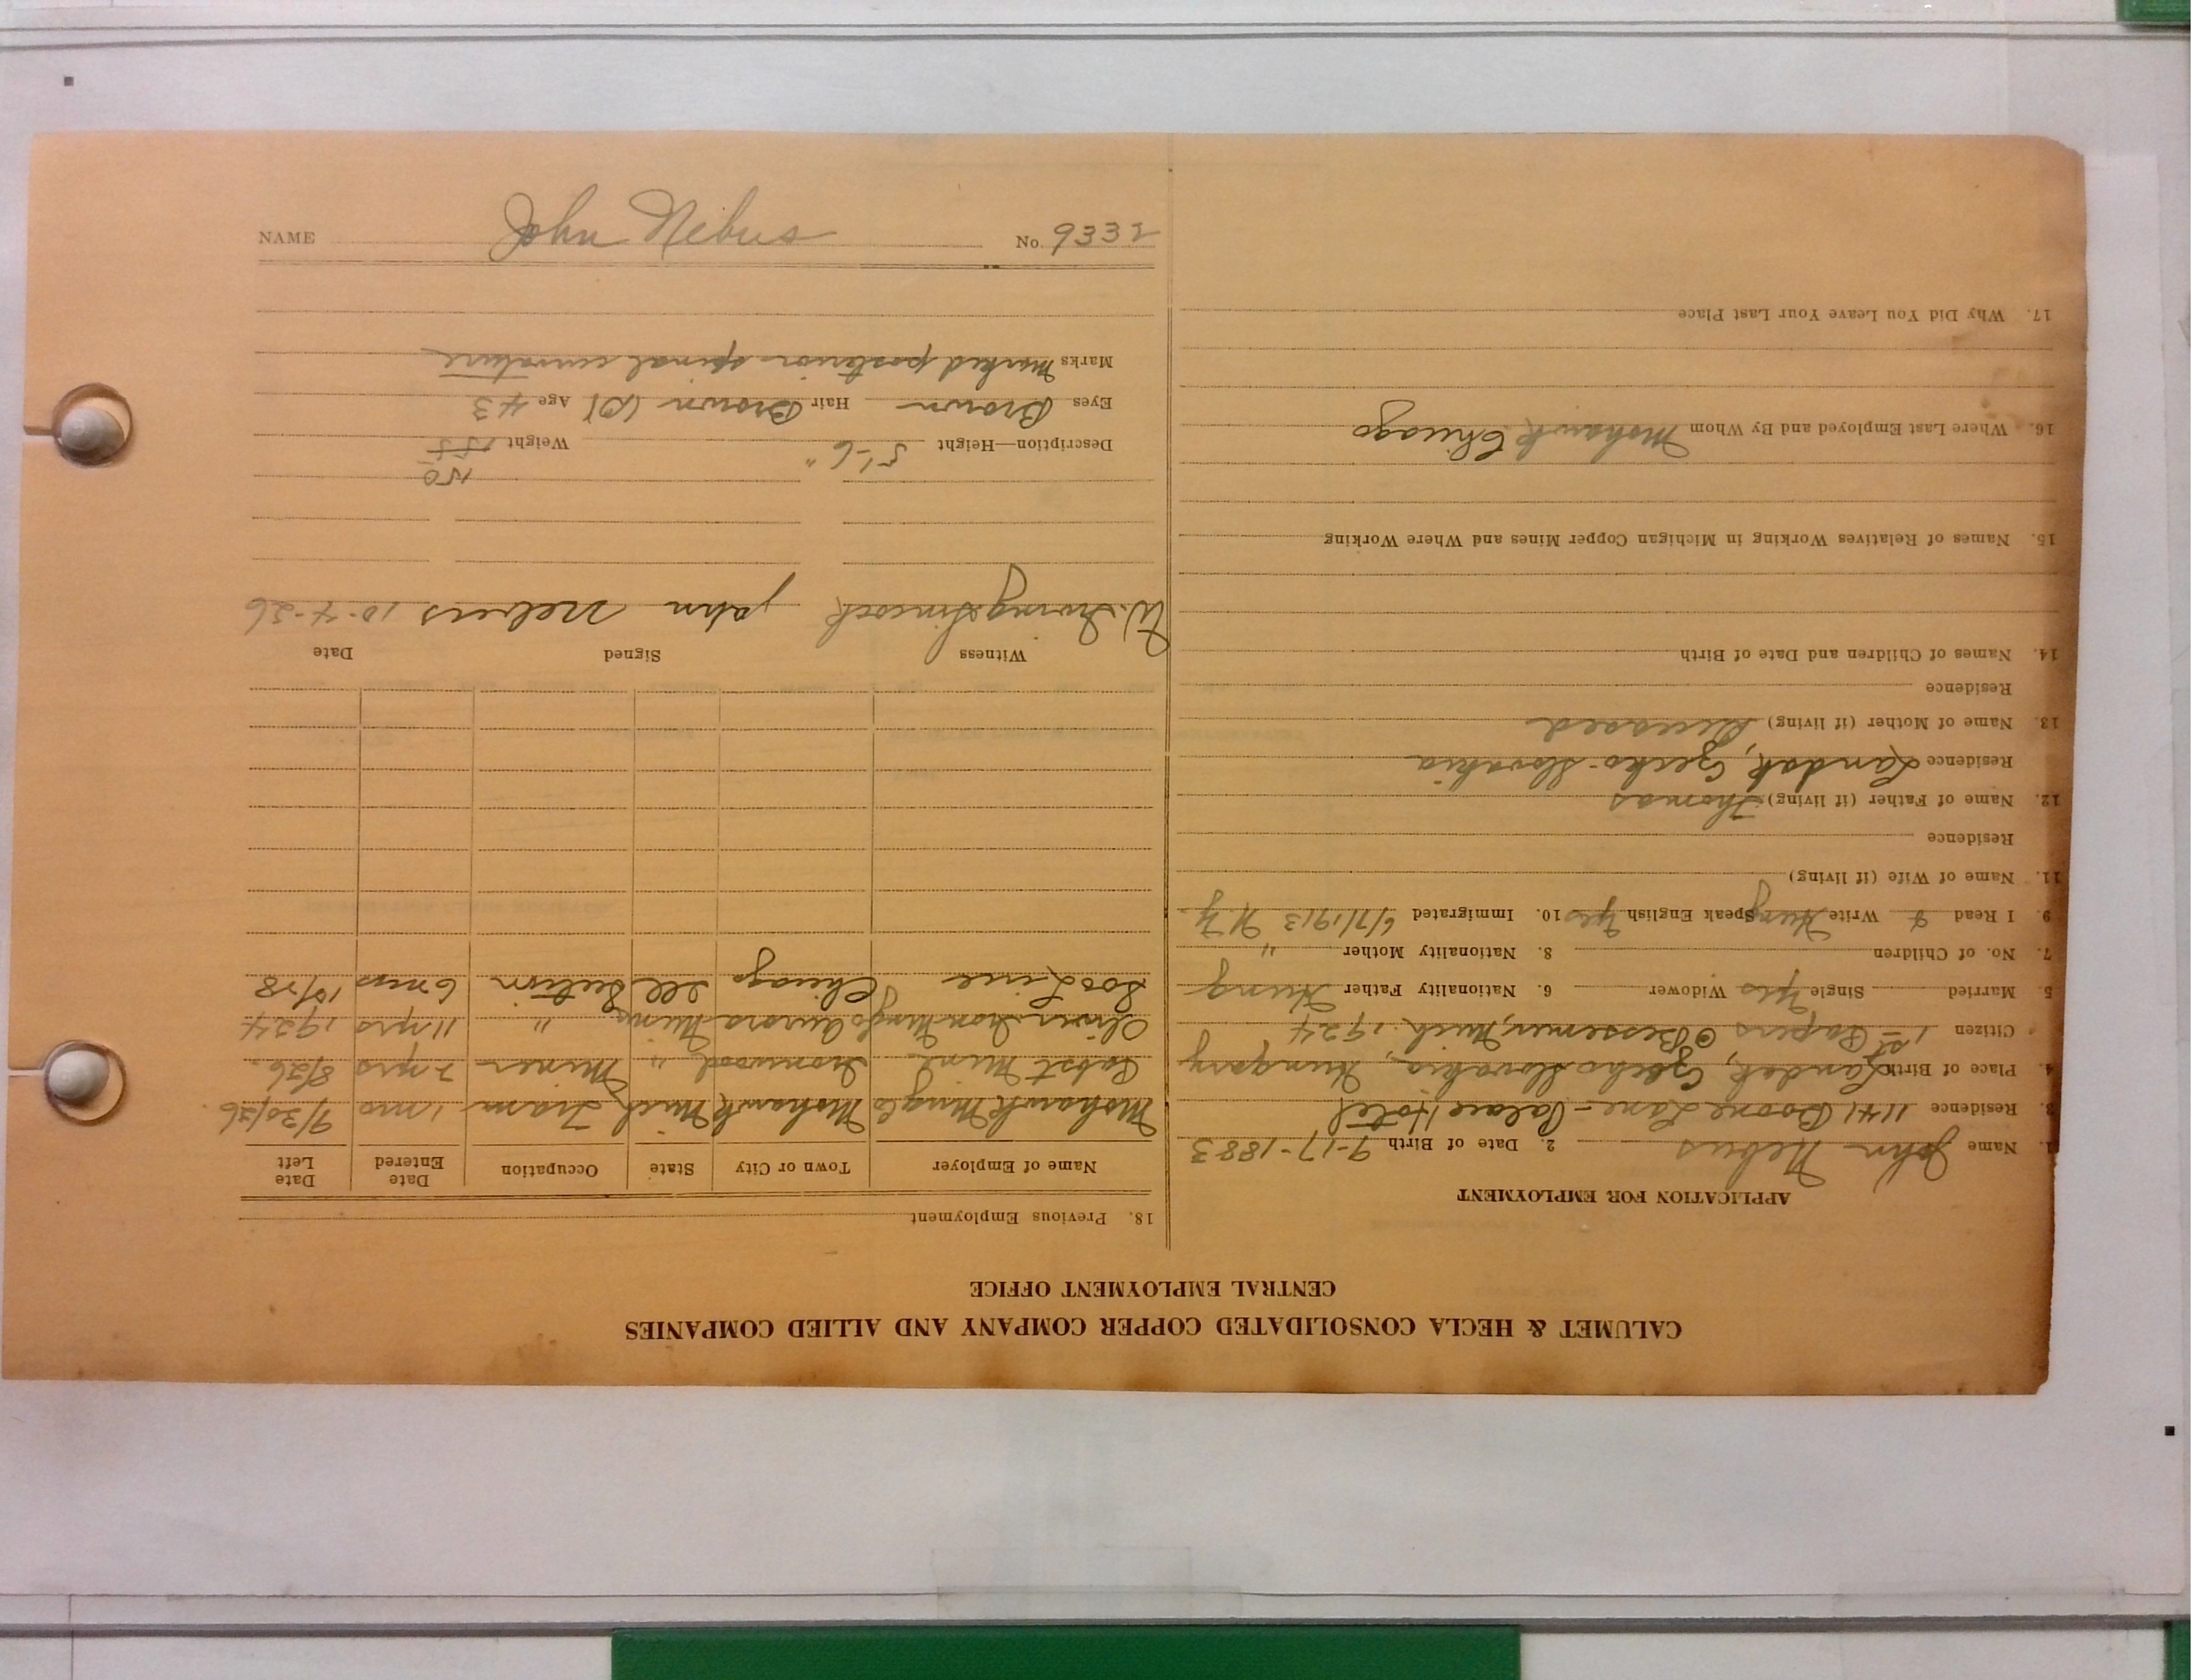 CALUMET & HECLA CONSOLIDATED COPPER COMPANY AND ALLIED COMPANIES
CENTRAL EMPLOYMENT OFFICE
APPLICATION FOR EMPLOYMENT
1. Name John Nebus 2. Date of Birth 9-17-1883
3. Residence 1141 Boone Lane - Palace Hotel
4. Place of Birth Landok, Czecho Slovakia, Hungary
Citizen 1st Papers @ Bessemer, Mich. 1924
5. Married Single Yes Widower 6. Nationality Father Hung
7. No. of Children 8. Nationality Mother "
9. I Read & Write Hung Speak English Yes 10. Immigrated 6/7/1913 N.Y.
11. Name of Wife (if living)
Residence
12. Name of Father (if living) Thomas
Residence Landok, Czecko-Slovakia
13. Name of Mother (if living) Deceased
Residence
14. Names of Children and Date of Birth
15. Names of Relatives Working in Michigan Copper Mines and Where Working
16. Where Last Employed and By Whom Mohawk Chicago
17. Why Did You Leave Your Last Place
18. Previous Employment
Name of Employer Town or City State Occupation Date Entered Date Left
Mohawk Ming Co Mohawk Mich Tram 1 mo 9/30/26
Pabst Mine Ironwood " Miner 2 yrs 8/26.
Oliver Iron Ming Co Aurora Mine " 11 yrs 1924
Soo Line Chicago Ill Section 6 mos
Witness Signed Date
W. Irving john Nebus 10-4-26
150
Description—Height 5'-6" Weight 155
Eyes Brown Hair Brown Age 43
Marks Marked posterior spinal curvature
NAME John Nebus No. 9332